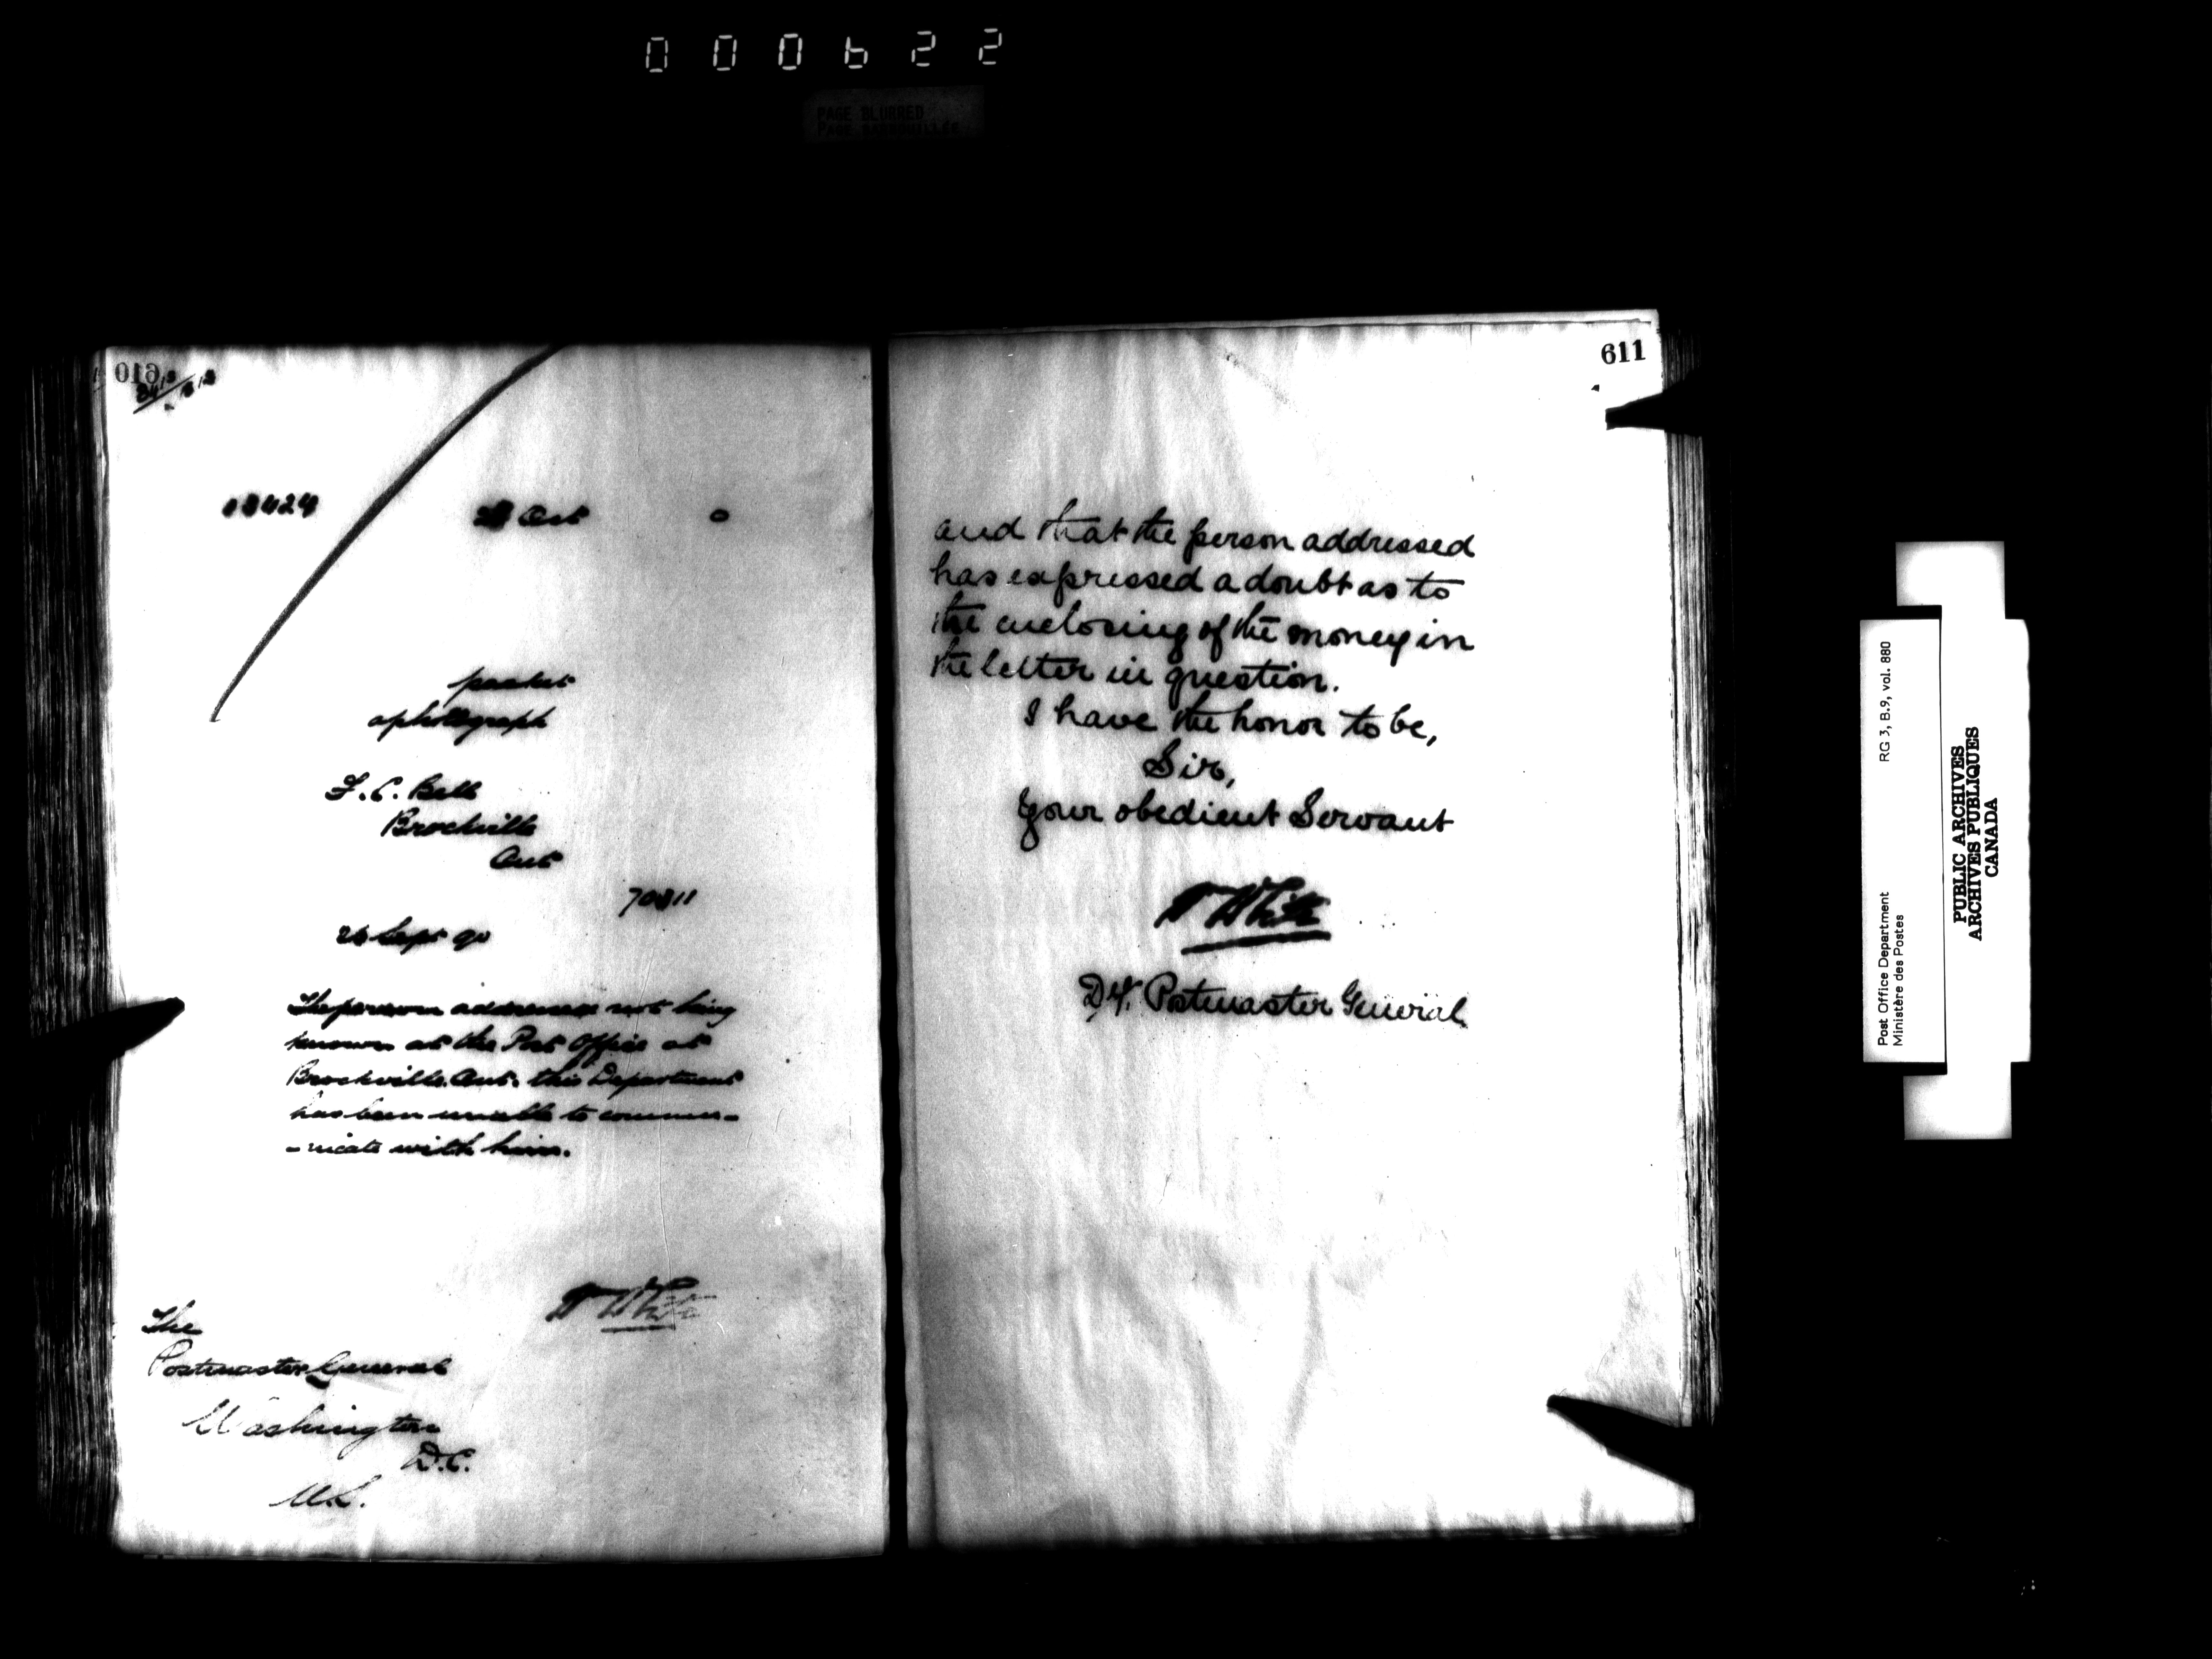 000622
PAGE BLURRED
610
13424
28 Oct 0
packet
a photograph
F. C. Bell
Brockville
Ont
70811
26 Sept 90
The person addressed not being
known at the Post Office at
Brockville. Ont. this Department
has been unable to commu-
-nicate with him.
W White
The
Postmaster General
Washington
D.C.
U.S.
611
and that the person addressed
has expressed a doubt as to
the enclosing of the money in
the letter in question.
I have the honor to be,
Sir,
Your obedient Servant
W White
Dy. Postmaster General
Post Office Department
Ministère des Postes
RG 3, B.9, vol. 880
PUBLIC ARCHIVES
ARCHIVES PUBLIQUES
CANADA